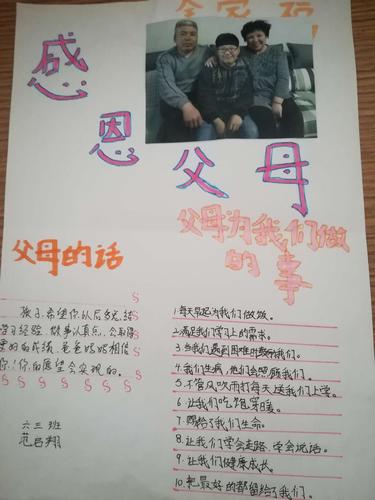 全家福
感恩父母
父母的话
孩子,希望你以后多总结
学习经验,做事认真点,会取得
更好的成绩,爸爸妈妈相信
你!你的愿望会实现的。
六三班
范吕翔
父母为我们做
的事
1.每天早起为我们做饭。
2.满足我们学习上的需求。
3.当我们遇到困难时帮助我们。
4.我们生病,他们会照顾我们。
5.不管风吹雨打每天送我们上学。
6.让我们吃饱穿暖。
7.赐给了我们生命。
8.让我们学会走路,学会说话。
9.让我们健康成长。
10.把最好的都留给了我们。